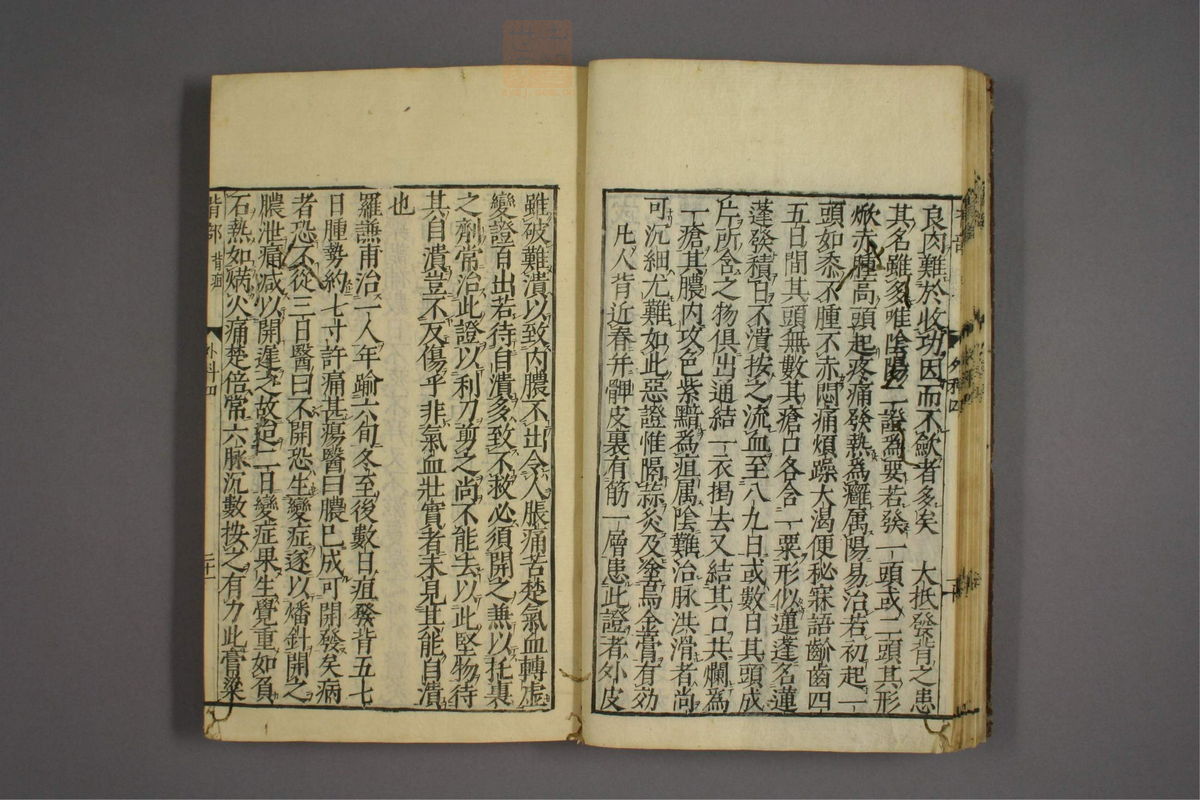 良肉難於收功因而不斂者多矣　大抵發背之患
其名雖多唯陰陽二證爲要若發一頭或二頭其形
焮赤腫高頭起疼痛發熱爲癰属陽易治若初起一
頭如黍不腫不赤悶痛煩躁大渴便秘寐語齘齒四
五日間其頭無數其瘡口各含一粟形似蓮蓬名蓮
蓬發積日不潰按之流血至八九日或數日其頭成
片所含之物俱出通結一衣掲去又結其口共爛爲
一瘡其膿内攻色紫黯爲疽属陰難治脉洪滑者尚
可沉細尤難如此惡證惟隔蒜灸及塗烏金膏有效
凡人背近脊并髀皮裏有筋一層患此證者外皮
雖破難潰以致内膿不出令人脹痛苦楚氣血轉虚
變證百出若待自潰多致不救必須開之兼以托裏
之劑常治此證以利刀剪之尚不能去以此堅物待
其自潰豈不反傷乎非氣血壯實者未見其能自潰
也
羅謙甫治一人年踰六旬冬至後數日疽發背五七
日腫勢約七寸許痛甚瘍醫曰膿已成可開發矣病
者恐不從三日醫曰不開恐生變症遂以燔針開之
膿泄痛减以開遲之故迨二日變症果生覺重如負
石熱如焫火痛楚倍常六脉沉數按之有力此膏粱
背部　背疽
外科四
二十一